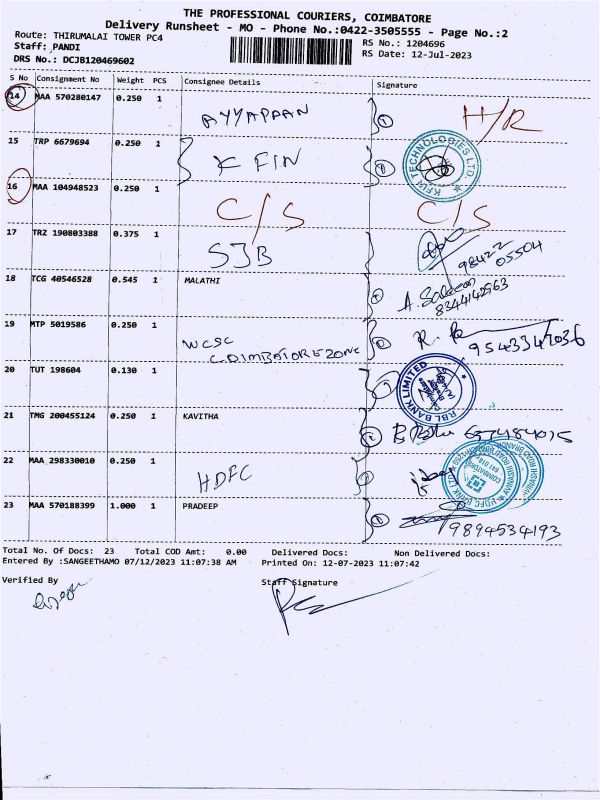 THE PROFESSIONAL COURIERS, COIMBATORE
Delivery Runsheet - MO - Phone No.:0422-3505555 - Page No.:2
Route: THIRUMALAI TOWER PC4 RS No.: 1204696
Staff: PANDI RS Date: 12-Jul-2023
DRS No.: DCJB120469602
S No Consignment No Weight PCS Consignee Details Signature
14 MAA 570280147 0.250 1 AYYAPPAN H/R
15 TRP 6679694 0.250 1 K FIN KFIN TECHNOLOGIES LTD.
16 MAA 104948523 0.250 1 C/S C/S
17 TRZ 190803388 0.375 1 SJB 98422
05504
18 TCG 40546528 0.545 1 MALATHI A.
8344142963
19 MTP 5019586 0.250 1 WCSC R.
COIMBATORE ZONE 9543347036
20 TUT 198604 0.130 1 RBL BANK LIMITED
21 TMG 200455124 0.250 1 KAVITHA
22 MAA 298330010 0.250 1 HDFC
23 MAA 570188399 1.000 1 PRADEEP 9894534193
Total No. Of Docs: 23 Total COD Amt: 0.00 Delivered Docs: Non Delivered Docs:
Entered By :SANGEETHAMO 07/12/2023 11:07:38 AM Printed On: 12-07-2023 11:07:42
Verified By Staff Signature